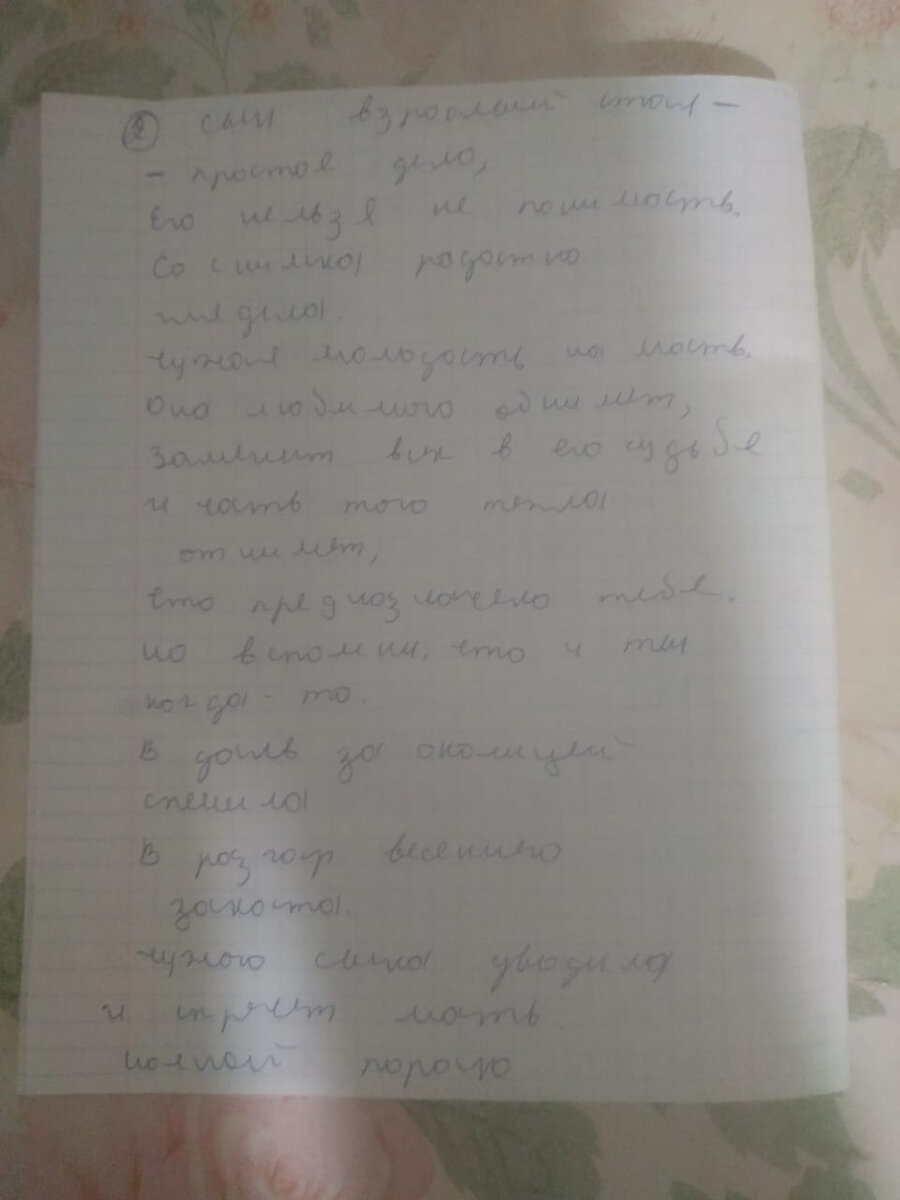 ② сын взрослый стал –
– простое дело,
Его нельзя не понимать.
Со снимка радостно
глядела.
чужая молодость на мать.
Она любимого обнимет,
заменит всех в его судьбе
и часть того тепла
отнимет,
что предназначено тебе.
но вспомни, что и ты
когда-то.
В даль за околицей
спешила
В разгар весеннего
заката.
чужого сына уводила
и спрячет мать
ночной порою